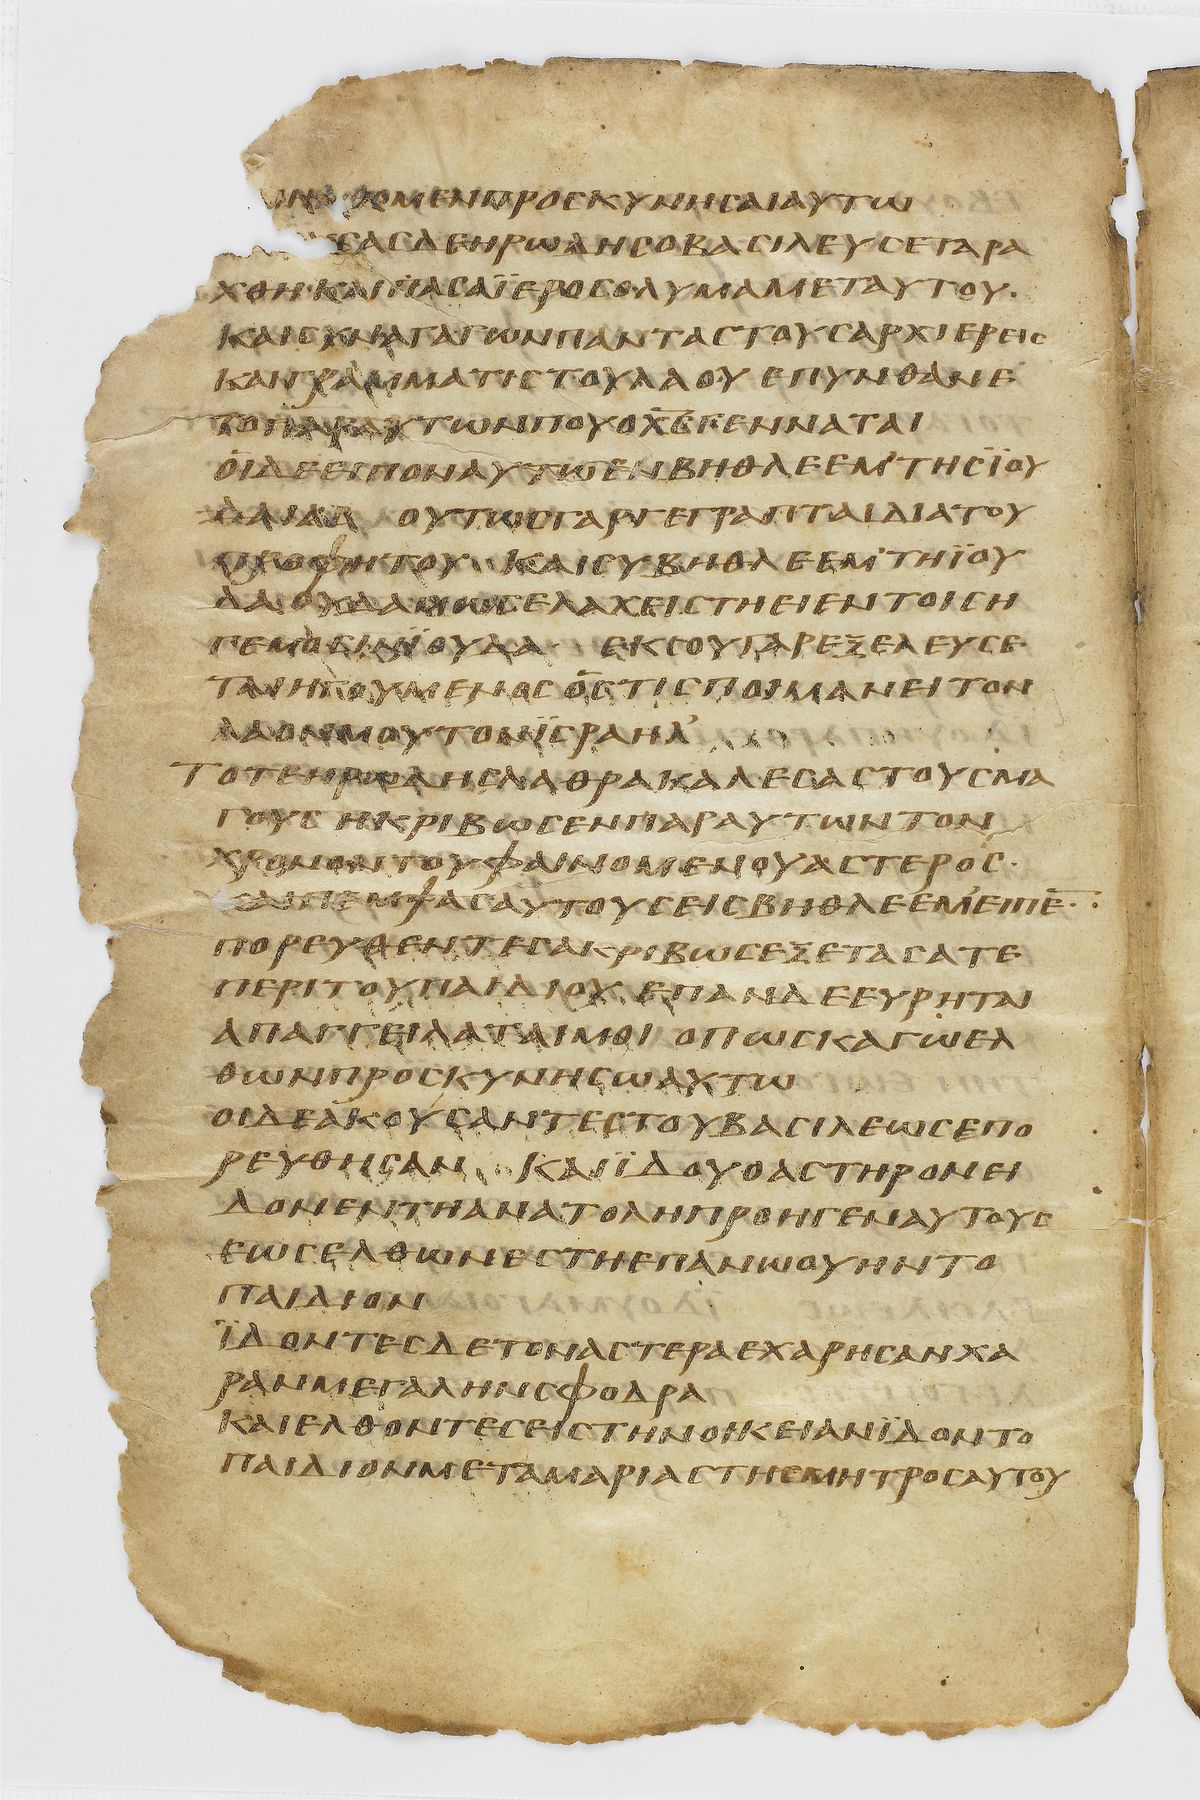 ΚΑΙΗΛΘΟΜΕΝΠΡΟΣΚΥΝΗΣΑΙΑΥΤΩ
ΣΑΣΔΕΗΡΩΔΗΣΟΒΑΣΙΛΕΥΣΕΤΑΡΑ
ΧΘΗ·ΚΑΙΠΑΣΑΪΕΡΟΣΟΛΥΜΑΜΕΤΑΥΤΟΥ·
ΚΑΙΣΥΝΑΓΑΓΩΝΠΑΝΤΑΣΤΟΥΣΑΡΧΙΕΡΕΙΣ
ΚΑΙΓΡΑΜΜΑΤΙΣΤΟΥΛΑΟΥΕΠΥΝΘΑΝΕ
ΤΟΠΑΡΑΥΤΩΝΠΟΥΟΧΣΓΕΝΝΑΤΑΙ
ΟΙΔΕΕΙΠΟΝΑΥΤΩΕΝΒΗΘΛΕΕΜ'ΤΗΣΪΟΥ
ΔΑΙΑΣ ΟΥΤΩΣΓΑΡΓΕΓΡΑΠΤΑΙΔΙΑΤΟΥ
ΠΡΟΦΗΤΟΥ ΚΑΙΣΥΒΗΘΛΕΕΜ'ΓΗΪΟΥ
ΔΑΟΥΔΑΜΩΣΕΛΑΧΕΙΣΤΗΕΙΕΝΤΟΙΣΗ
ΓΕΜΟΣΙΝΪΟΥΔΑ ΕΚΣΟΥΓΑΡΕΞΕΛΕΥΣΕ
ΤΑΙΗΓΟΥΜΕΝΟΣΟΣΤΙΣΠΟΙΜΑΝΕΙΤΟΝ
ΛΑΟΝΜΟΥΤΟΝΪΣΡΑΗΛ'
ΤΟΤΕΗΡΩΔΗΣΛΑΘΡΑΚΑΛΕΣΑΣΤΟΥΣΜΑ
ΓΟΥΣΗΚΡΙΒΩΣΕΝΠΑΡΑΥΤΩΝΤΟΝ
ΧΡΟΝΟΝΤΟΥΦΑΙΝΟΜΕΝΟΥΑΣΤΕΡΟΣ·
ΚΑΙΠΕΜΨΑΣΑΥΤΟΥΣΕΙΣΒΗΘΛΕΕΜ'ΕΙΠΕ·
ΠΟΡΕΥΘΕΝΤΕΣΑΚΡΙΒΩΣΕΞΕΤΑΣΑΤΕ
ΠΕΡΙΤΟΥΠΑΙΔΙΟΥ ΕΠΑΝΔΕΕΥΡΗΤΑΙ
ΑΠΑΓΓΕΙΛΑΤΑΙΜΟΙ ΟΠΩΣΚΑΓΩΕΛ
ΘΩΝΠΡΟΣΚΥΝΗΣΩΑΥΤΩ
ΟΙΔΕΑΚΟΥΣΑΝΤΕΣΤΟΥΒΑΣΙΛΕΩΣΕΠΟ
ΡΕΥΘΗΣΑΝ ΚΑΙΪΔΟΥΟΑΣΤΗΡΟΝΕΙ
ΔΟΝΕΝΤΗΑΝΑΤΟΛΗΠΡΟΗΓΕΝΑΥΤΟΥΣ
ΕΩΣΕΛΘΩΝΕΣΤΗΕΠΑΝΩΟΥΗΝΤΟ
ΠΑΙΔΙΟΝ
ΪΔΟΝΤΕΣΔΕΤΟΝΑΣΤΕΡΑΕΧΑΡΗΣΑΝΧΑ
ΡΑΝΜΕΓΑΛΗΝΣΦΟΔΡΑ
ΚΑΙΕΛΘΟΝΤΕΣΕΙΣΤΗΝΟΙΚΕΙΑΝΪΔΟΝΤΟ
ΠΑΙΔΙΟΝΜΕΤΑΜΑΡΙΑΣΤΗΣΜΗΤΡΟΣΑΥΤΟΥ